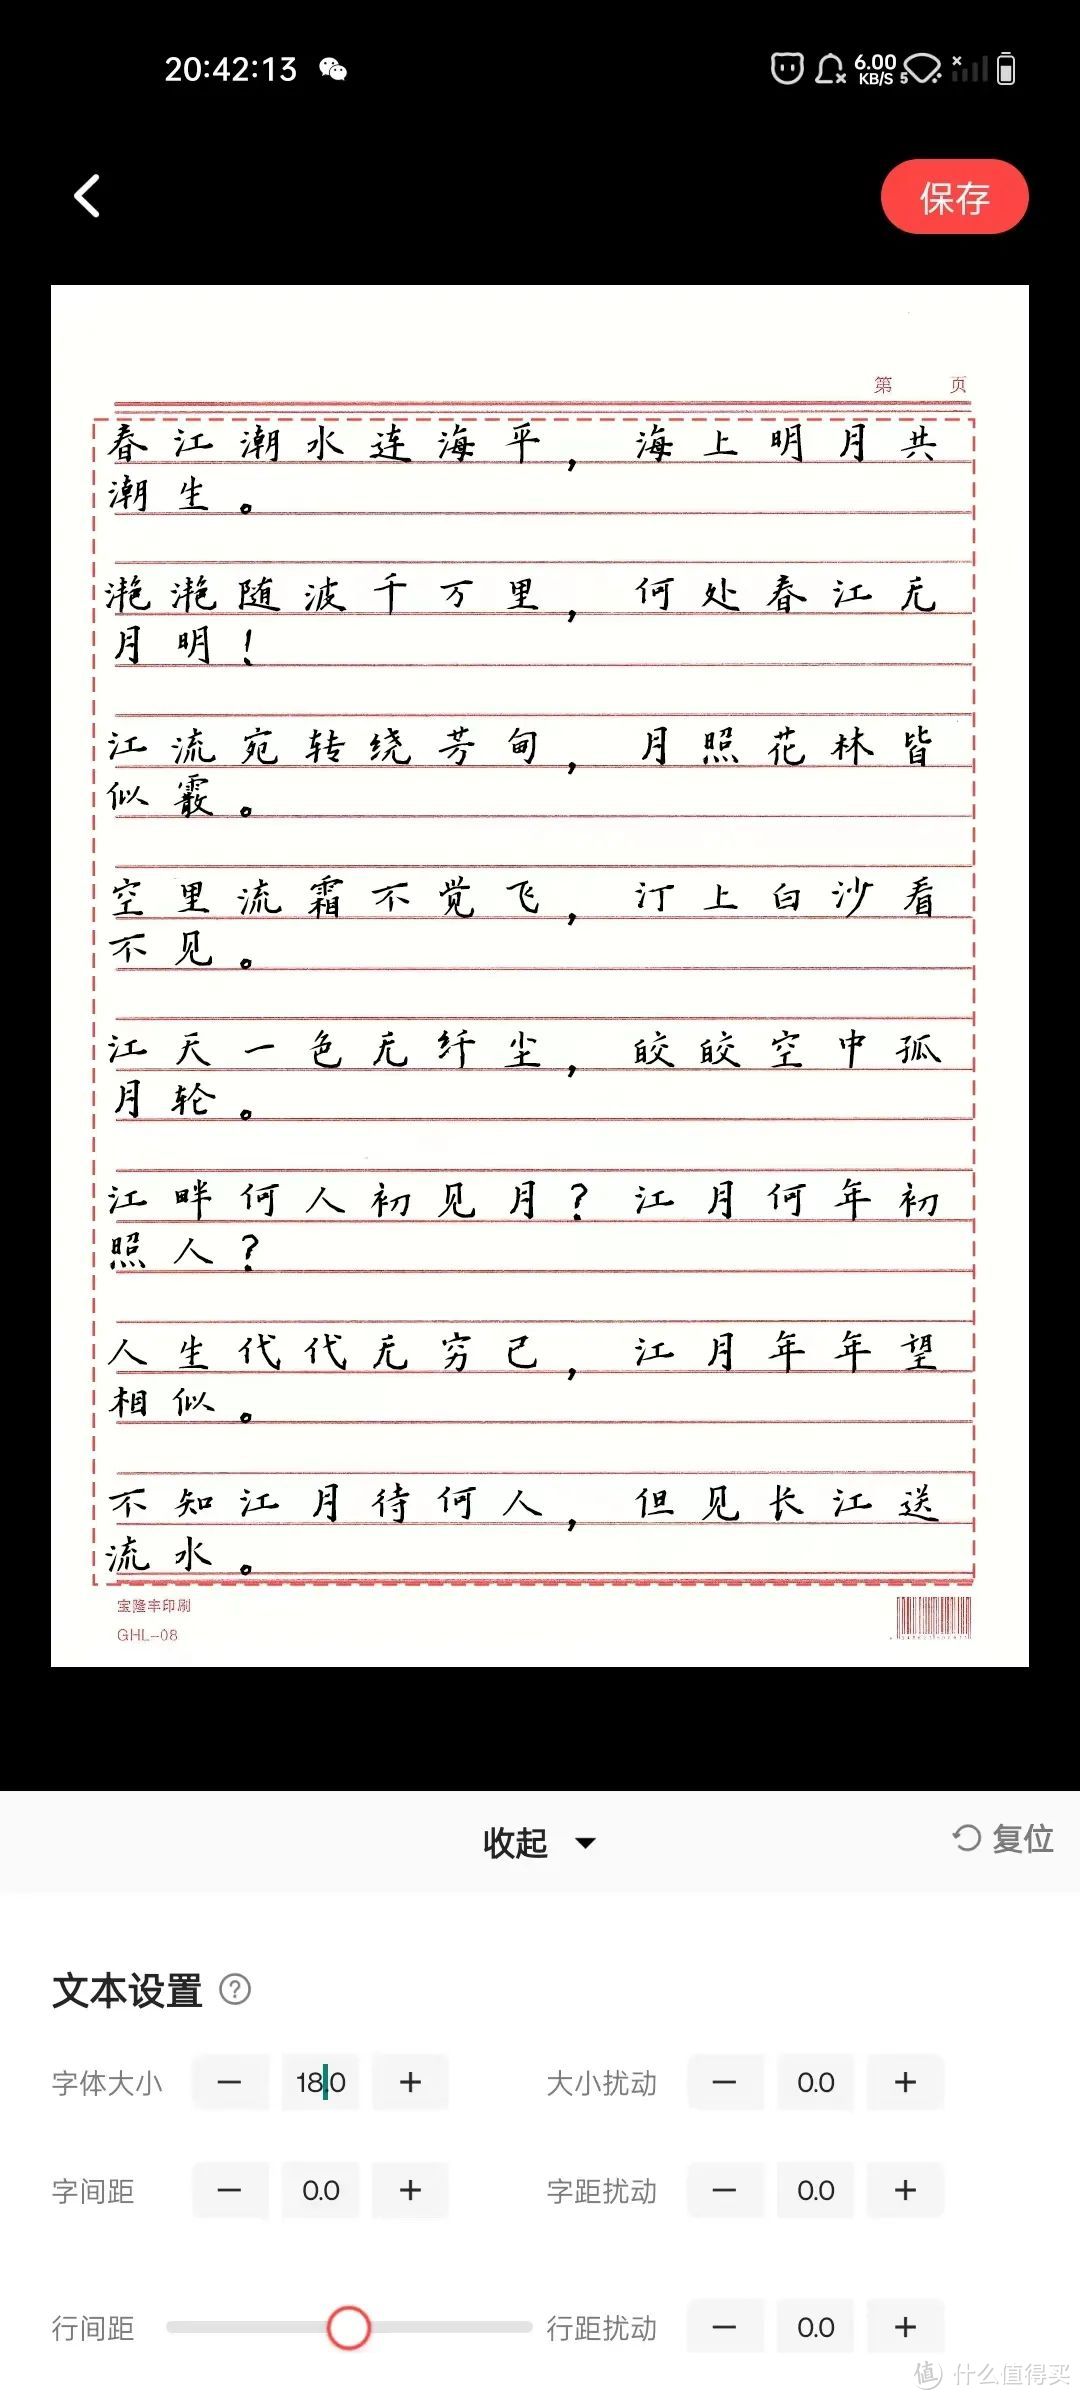 20:42:13 6.00 KB/S 5
保存
第 页
春江潮水连海平，海上明月共
潮生。
滟滟随波千万里，何处春江无
月明！
江流宛转绕芳甸，月照花林皆
似霰。
空里流霜不觉飞，汀上白沙看
不见。
江天一色无纤尘，皎皎空中孤
月轮。
江畔何人初见月？江月何年初
照人？
人生代代无穷已，江月年年望
相似。
不知江月待何人，但见长江送
流水。
宝隆丰印刷
GHL-08
收起 复位
文本设置 ?
字体大小 — 18.0 + 大小扰动 — 0.0 +
字间距 — 0.0 + 字距扰动 — 0.0 +
行间距 行距扰动 — 0.0 +
值 什么值得买